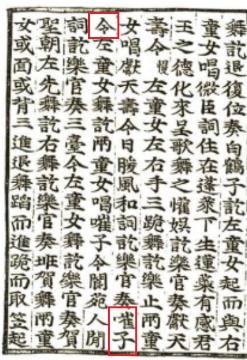 舞訖退復位奏白鶴子訖左童女起而與右
童女唱微臣詞住在蓬萊下生蓮蘂有感君
王之德化來呈歌舞之懽娛訖樂官奏獻天
壽令慢左童女左右手三跪舞訖樂止兩童
女唱獻天壽令日暖風和詞訖樂官奏嗺子
令左童女舞訖兩童女唱嗺子令閬苑人閒
詞訖樂官奏三臺令左童女舞訖樂官奏賀
聖朝左先舞訖右舞訖樂官奏班賀舞兩童
女或面或背三進退舞蹈而進跪而取笠起